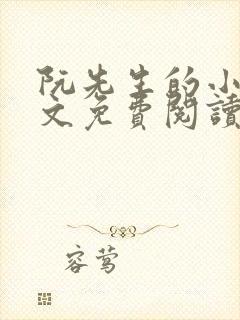 阮先生的小
文免費閱讀
容莺